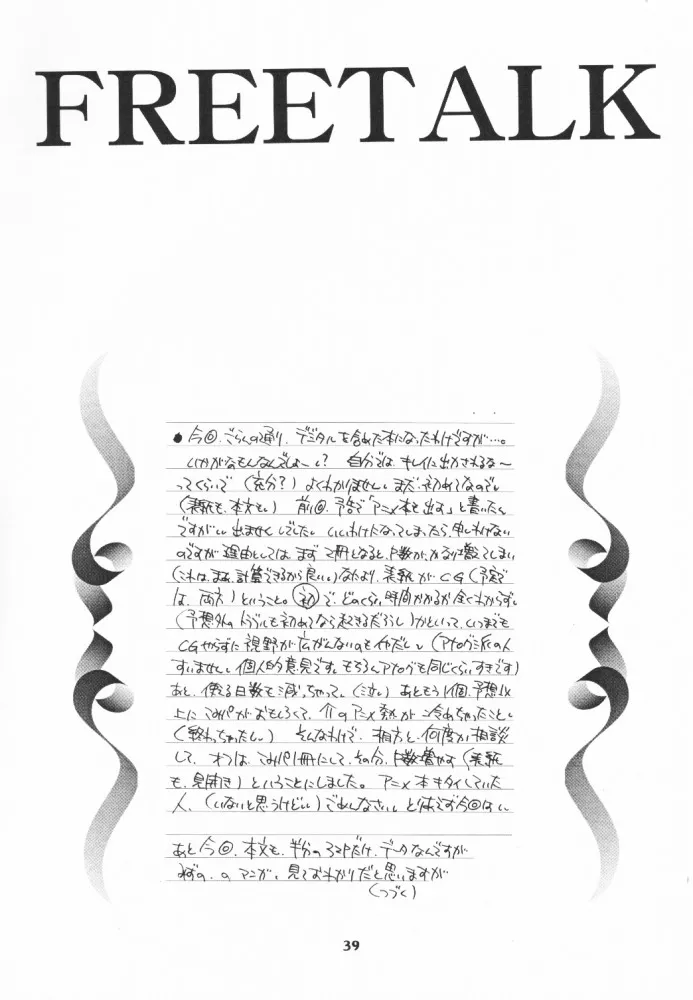 FREETALK
●今回、ごらんの通り、デジタルを含めた本になったわけですが…。
いかがなもんなんでしょーい? 自分では、キレイに出かされるな〜
ってくらいで(充分?)よくわかりません。まだ初めてなので。
(表紙も、本文も。) 前回、予告で「アニメ本を出す」と書いたん
ですが… 出ませんでした。いいわけになってしまったら、申しわけない
のですが 理由としては まず 2冊となると P数が、かなり増えてしまい
(これは、まあ、計算できるから良い。) なにより、表紙が CG(予定で
は、両方)ということ。初で、どのくらい時間かかるか全くわからず。
(予想外のトラブルも初めてなら起きるだろうし)かといって、いつまでも
CGやらずに視野が広がんないのもイヤだし。(アナログ派の人
すいません。個人的意見です。もちろんアナログも同じくらいすきです)
あと、使える日数も減っちゃって。(泣い) あともう1個、予想以
上に こみパがおもしろくて、 のアニメ熱が 冷めちゃったこと。
(終わっちゃったし。) そんなわけで、相方と、何度か相談
して、オフは、こみパ1冊にして、その分、P数増やす(表紙
も、見開き)ということにしました。 アニメ本キタイしていた
人、(いないと思うけどい)ごめんなさい。 と 今回は い
あと今回、本文も、半分の コマだけ、データなんですが
の マンガ、見ておわかりだと思いますが
(つづく)
39